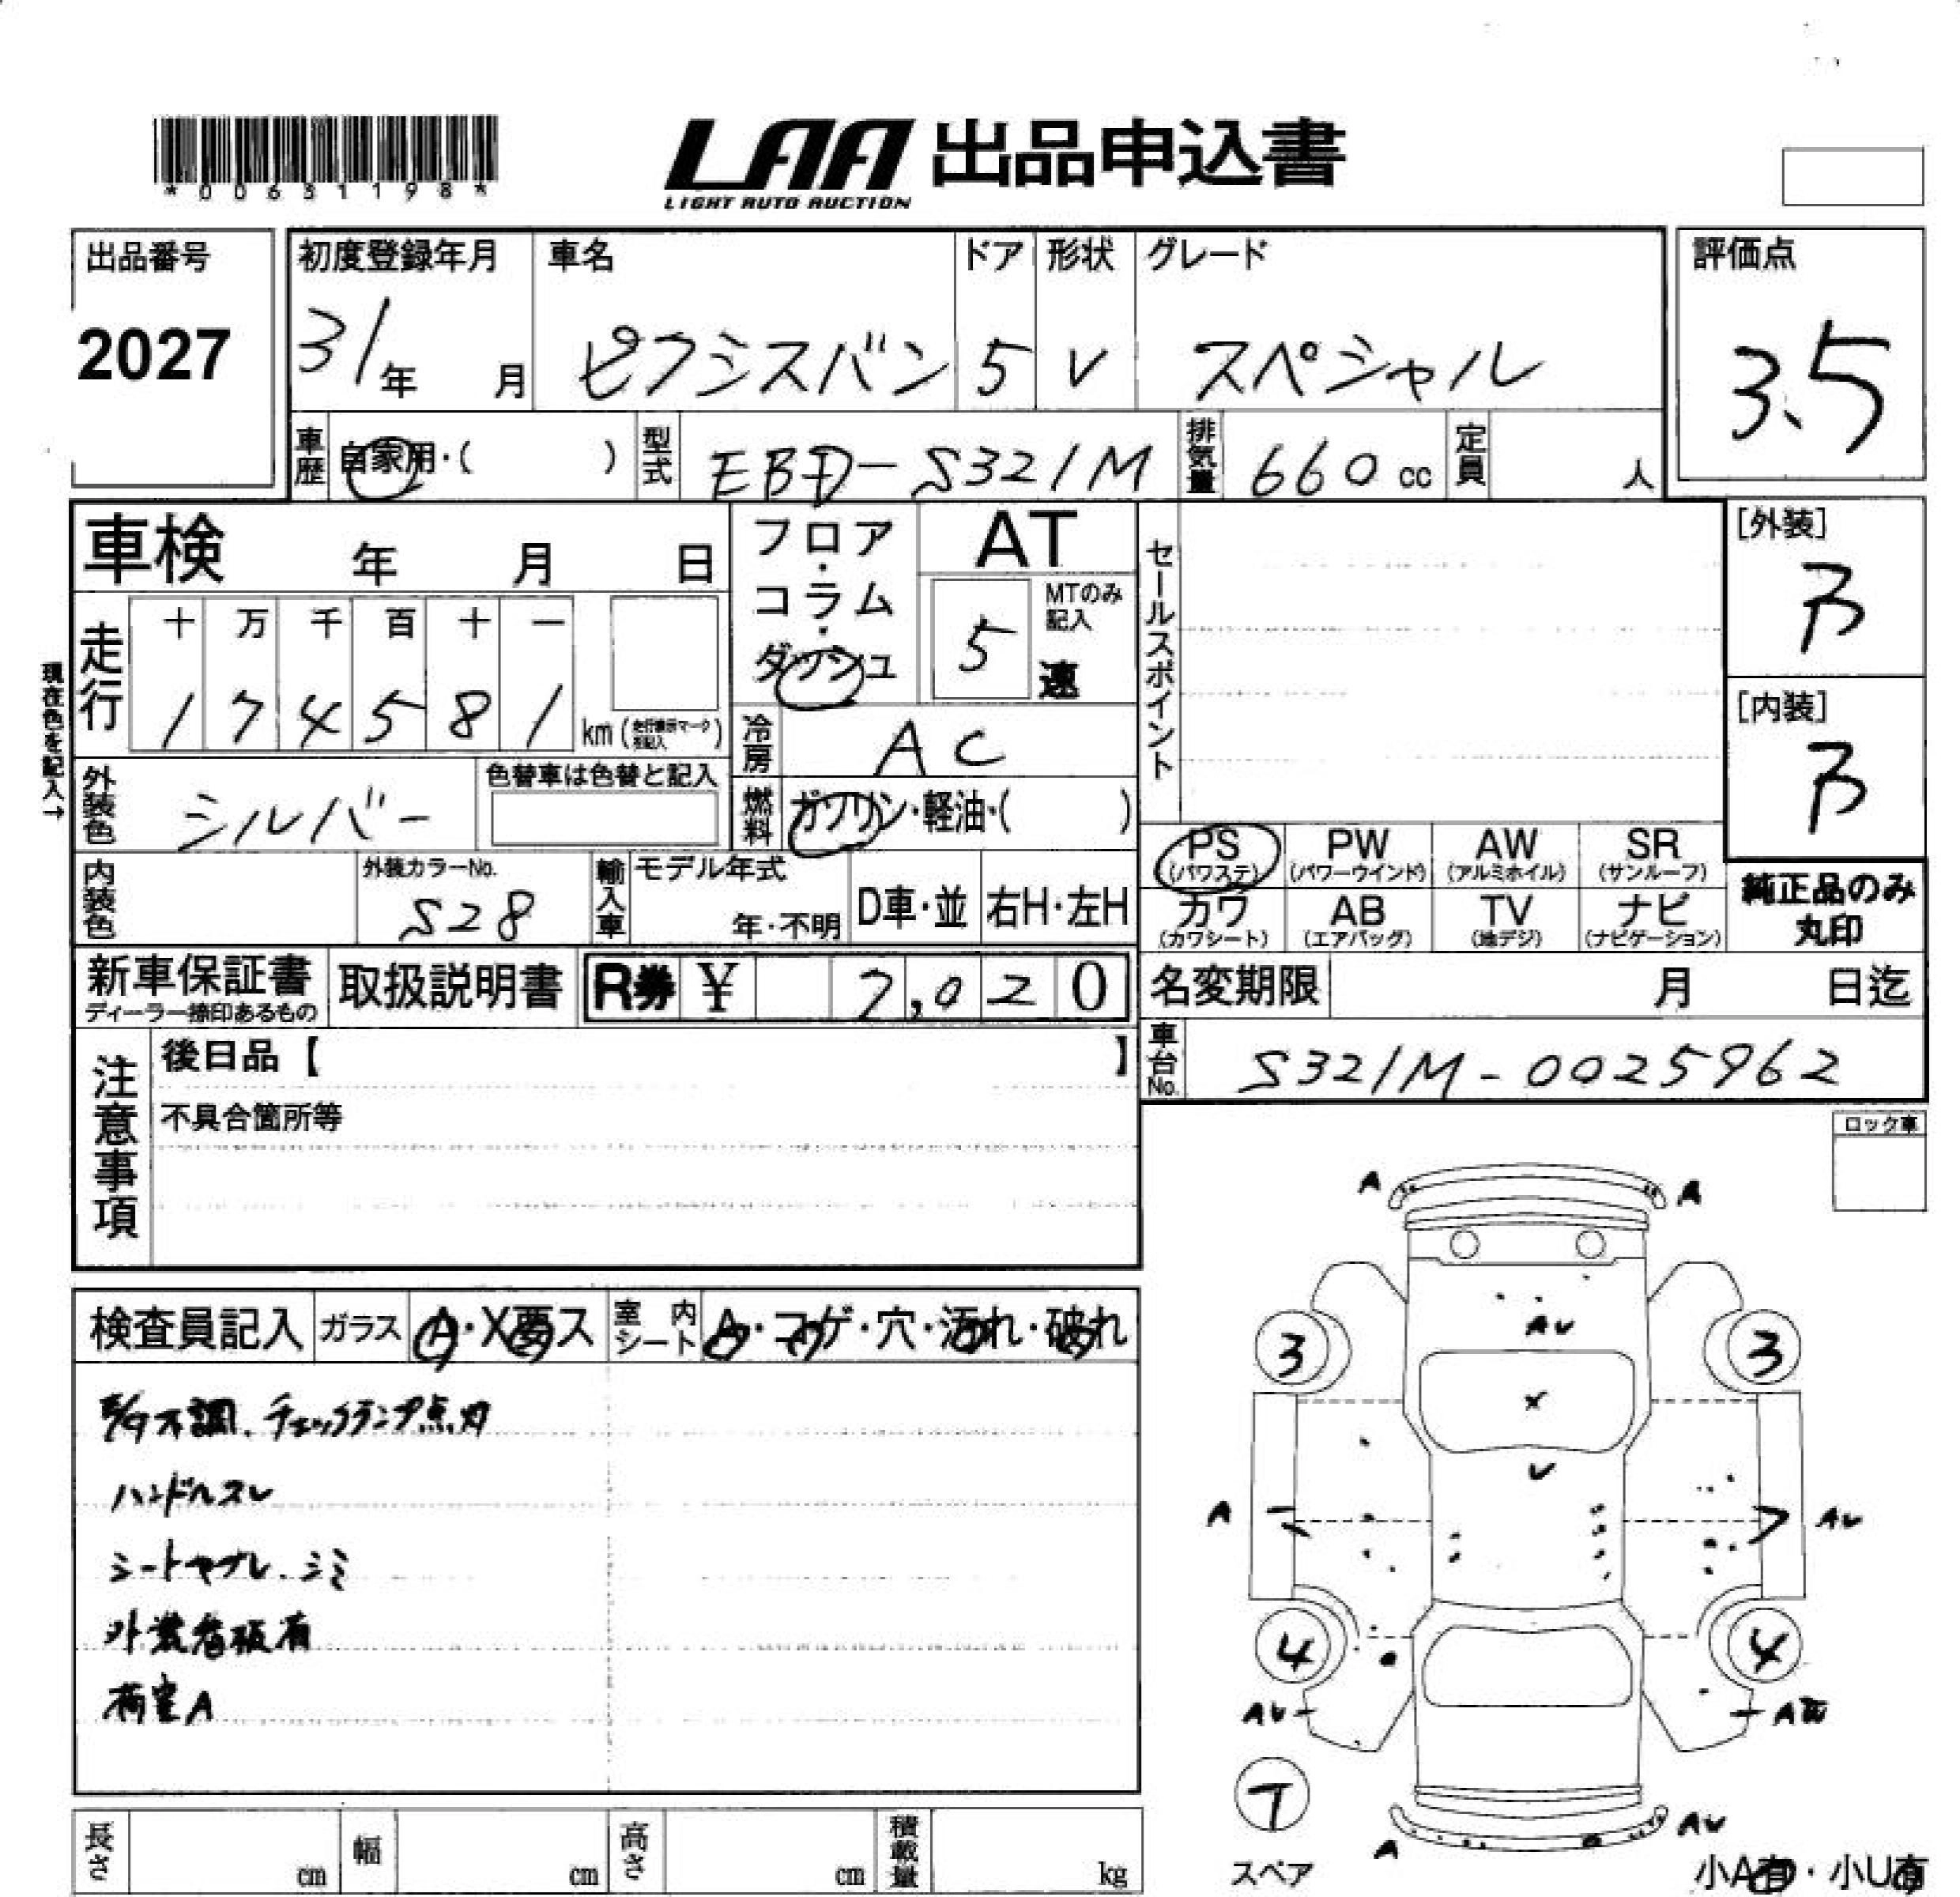 *00631198*
LAA 出品申込書
LIGHT AUTO AUCTION
出品番号
2027
初度登録年月
31年 月
車名
ピクシスバン
ドア
5
形状
V
グレード
スペシャル
評価点
3.5
車歴 自家用・( )
型式 EBD-S321M
排気量 660cc
定員 人
車検 年 月 日
フロア・コラム・ダッシュ
AT
5速
MTのみ記入
セールスポイント
[外装]
B
[内装]
B
現在色を記入→
走行
十 万 千 百 十 一
1 7 4 5 8 1 km(走行表示マーク を記入)
冷房 AC
外装色 シルバー
色替車は色替と記入
燃料 ガソリン・軽油・( )
PS (パワステ)
PW (パワーウインド)
AW (アルミホイル)
SR (サンルーフ)
カワ (カワシート)
AB (エアバッグ)
TV (地デジ)
ナビ (ナビゲーション)
純正品のみ
丸印
内装色
外装カラーNo.
S28
輸入車
モデル年式
年・不明
D車・並
右H・左H
新車保証書
ディーラー捺印あるもの
取扱説明書
R券 ¥ 7,020
名変期限 月 日迄
車台No. S321M-0025962
注意事項
後日品【 】
不具合箇所等
ロック車
検査員記入 ガラス A・X要ス 室内シート A・コゲ・穴・汚れ・破れ
E/g不調、チェックランプ点灯
ハンドルスレ
シートヤブレ、シミ
外装看板有
荷室A
A A
AU
3 3
X
U
A AU
4 4
AU
7
スペア
A AU
小A有・小U有
長さ cm
幅 cm
高さ cm
積載量 kg